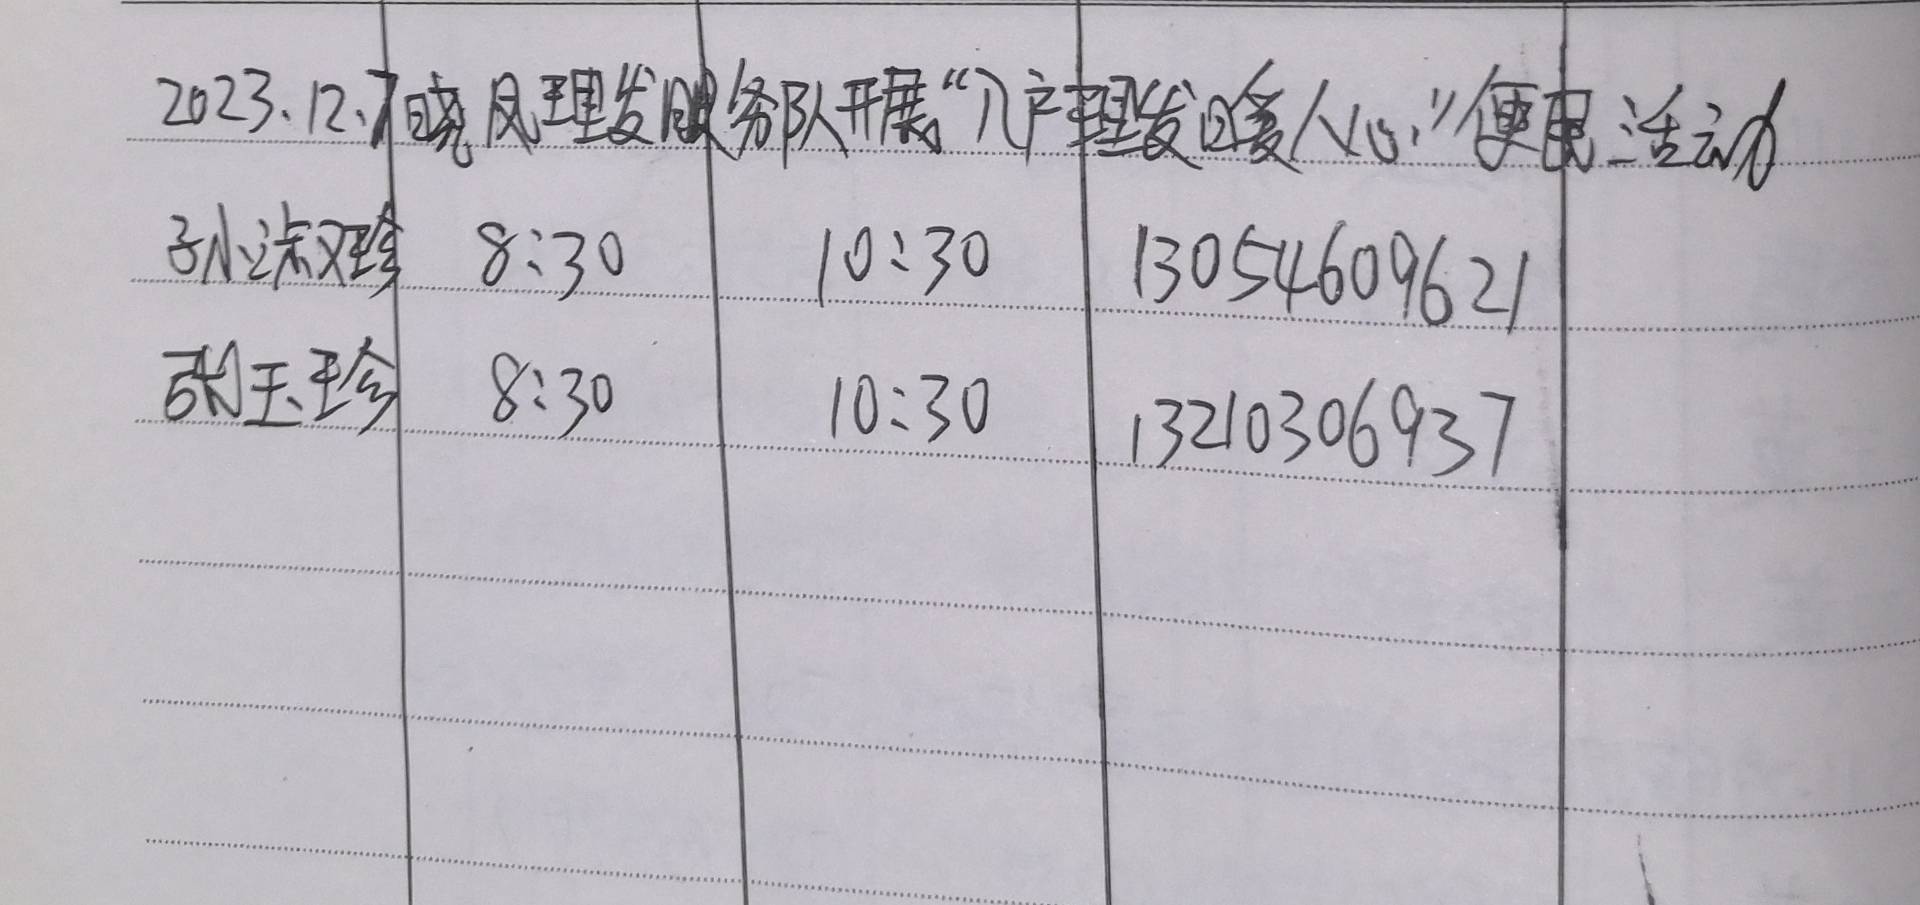 2023.12.7晓风理发服务队开展“入户理发暖人心”便民活动
孙淑珍 8:30 10:30 13054609621
张玉珍 8:30 10:30 13210306937